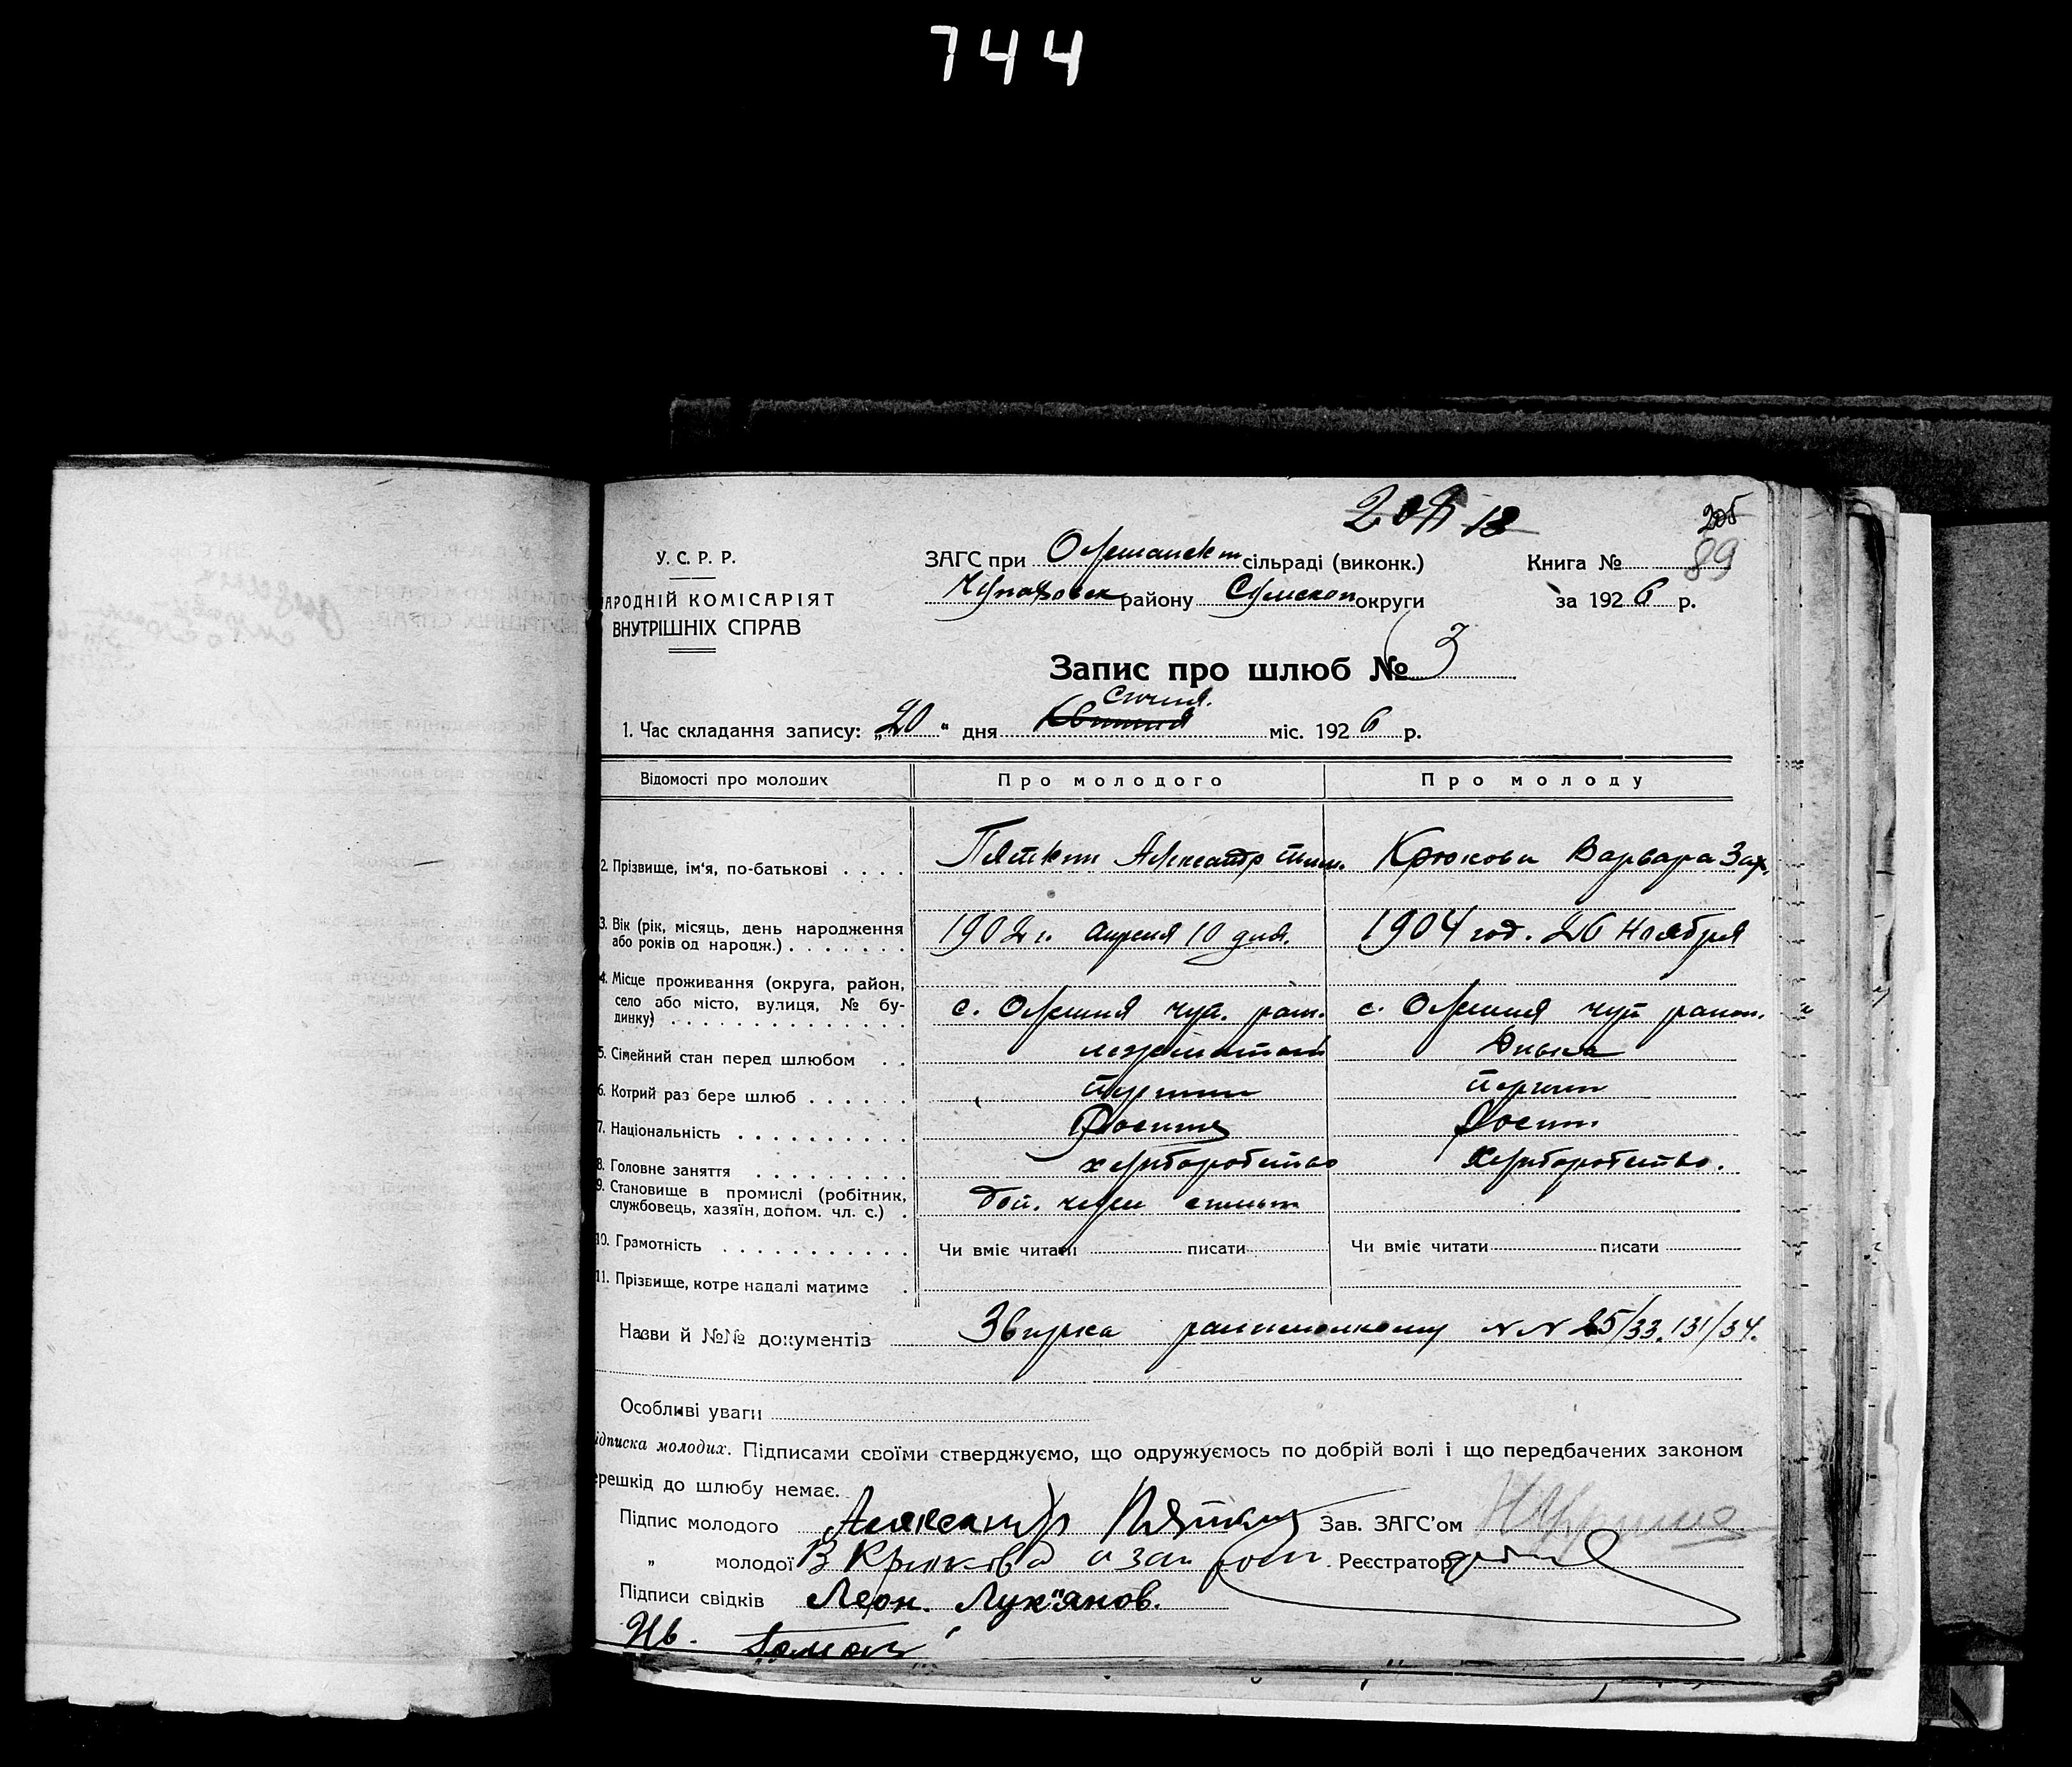 744
205
У. С. Р. Р.
НАРОДНІЙ КОМІСАРІЯТ
ВНУТРІШНІХ СПРАВ
ЗАГС при Олешанск сільраді (виконк.)
Чупаховск району Сумской округи
Книга № 89
за 1926 р.
Запис про шлюб № 3
Січня.
1. Час складання запису: „20“ дня Квитня міс. 1926 р.
Відомості про молодих Про молодого Про молоду
2. Прізвище, ім'я, по-батькові . . . . Пяткин Александр Тим. Крюкова Варвара Зах.
3. Вік (рік, місяць, день народження
або років од народж.) . . . . . . 1902 г. Апреля 10 дня. 1904 год. 26 Ноября
4. Місце проживання (округа, район,
село або місто, вулиця, № бу-
динку) . . . . . . . . . . . . . . с. Олешня чуп. рай. с. Олешня чуп район.
5. Сімейний стан перед шлюбом . . нежонатый Дивка
6. Котрий раз бере шлюб . . . . . . Перший Перший
7. Національність . . . . . . . . . .
8. Головне заняття . . . . . . . . . хлиборобство Хлиборобство.
9. Становище в промислі (робітник,
службовець, хазяїн, допом. чл. с.) .
10. Грамотність . . . . . . . . . . . Чи вміє читати писати Чи вміє читати писати
11. Прізвище, котре надалі матиме .
Назви й №№ документів N N 25/33. 131/34.
Особливі уваги
ідписка молодих. Підписами своїми стверджуємо, що одружуємось по добрій волі і що передбачених законом
ерешкід до шлюбу немає.
Підпис молодого Александр Пяткин Зав. ЗАГС'ом
„ молодої В Крюкова Реєстратор
Підписи свідків Леон. Лук"янов.
Ив.